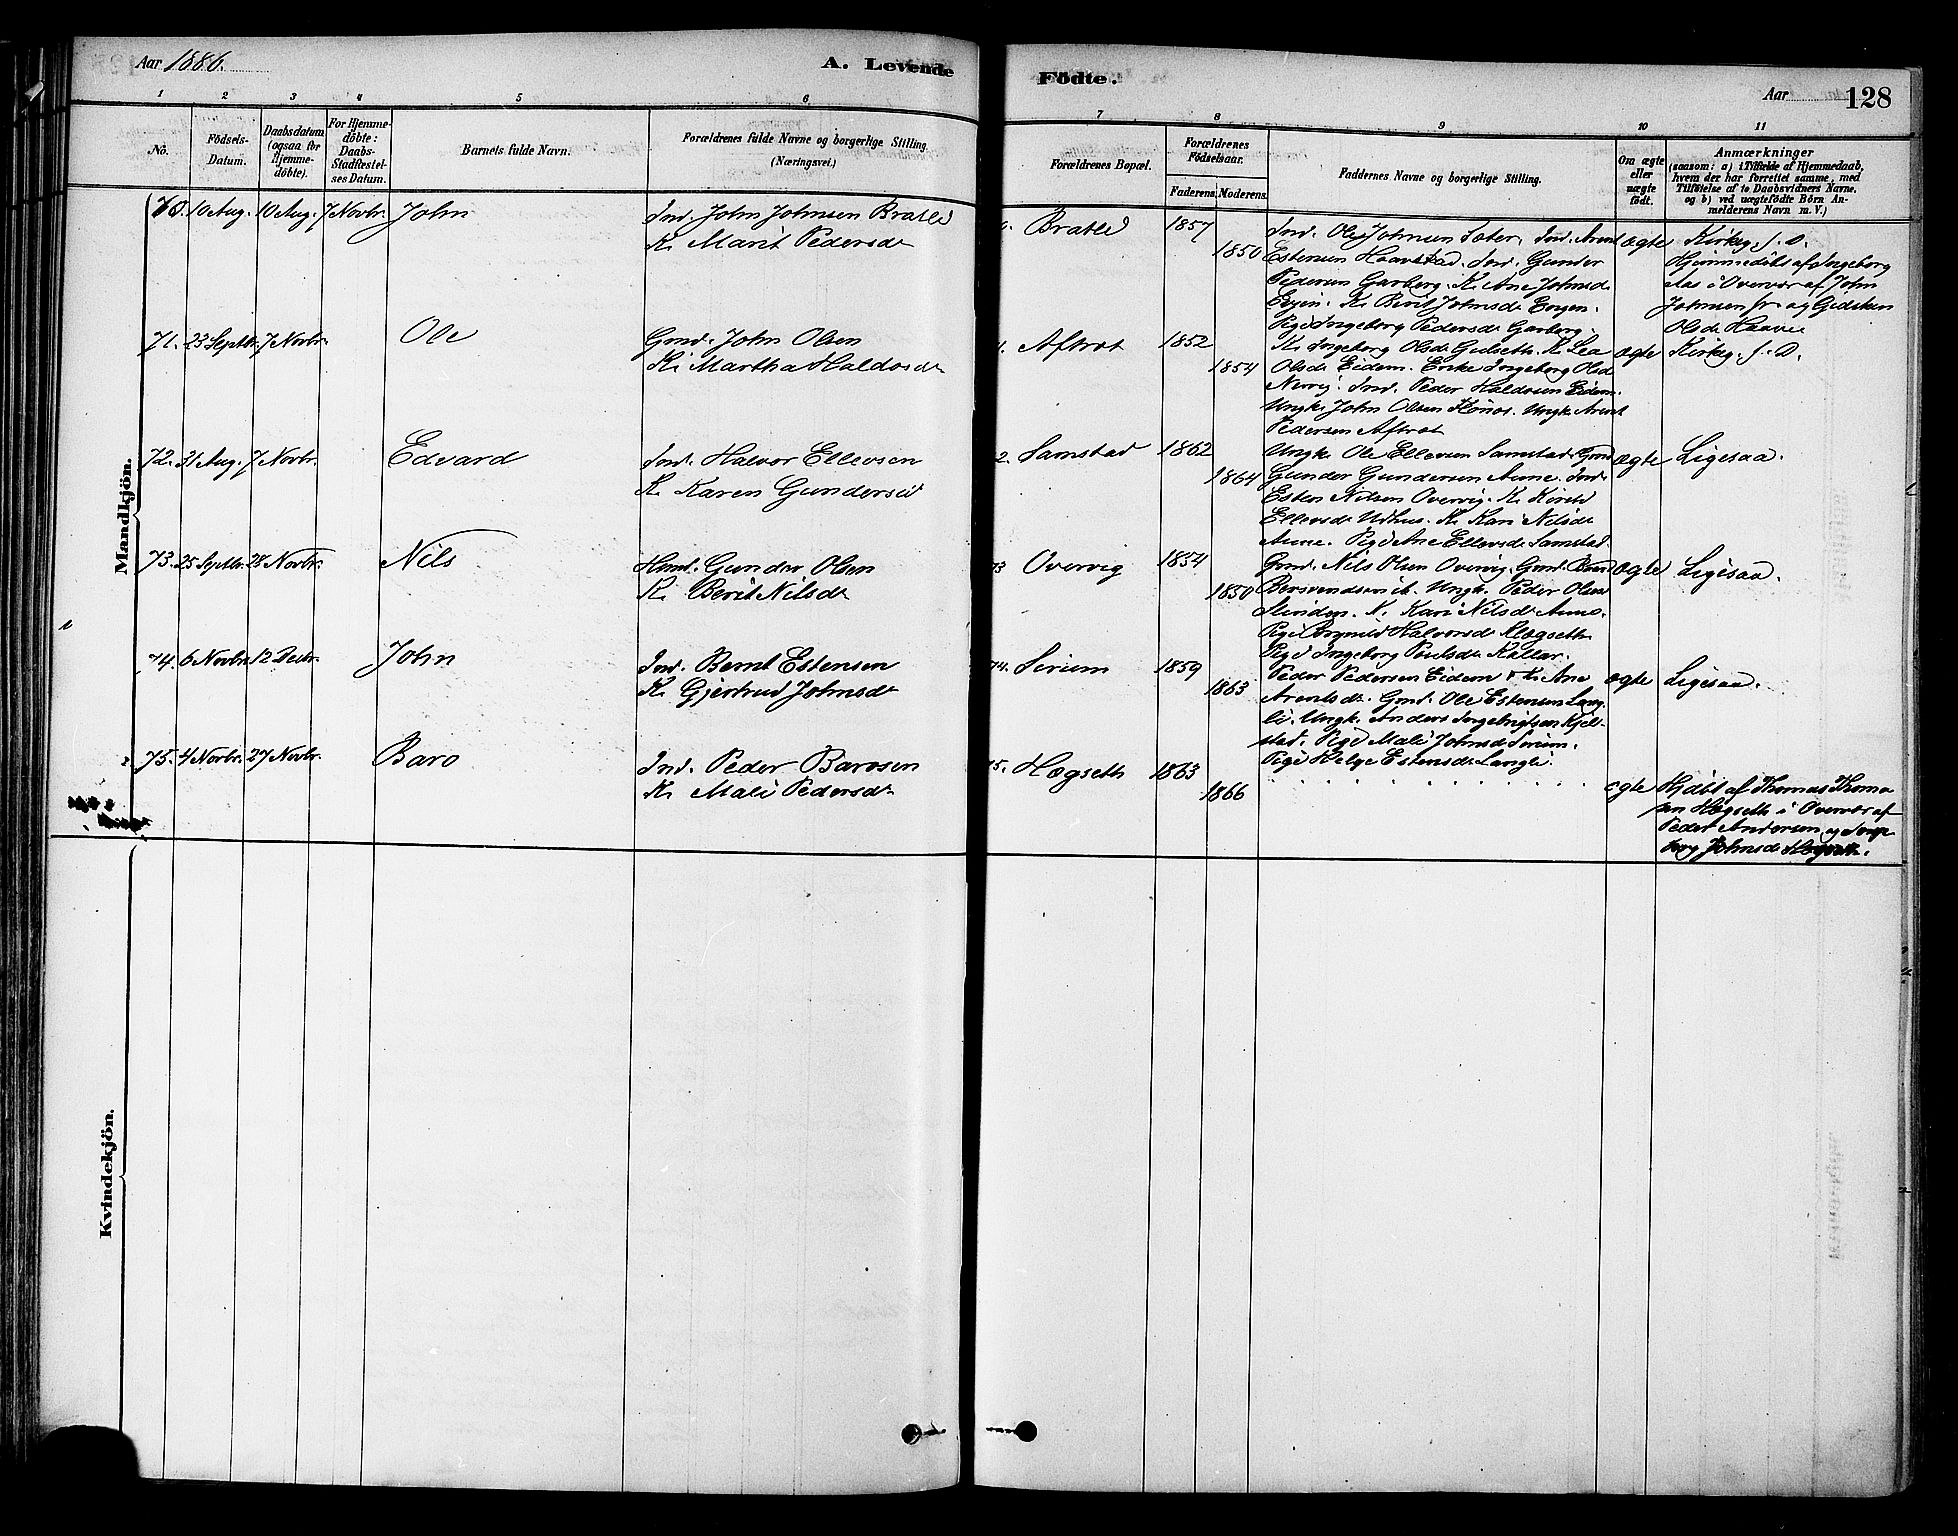 Aar 1886.
A. Levende Fødte.
Aar 128
1 2 3 4 5 6 7 8 9 10 11
No.
Fødsels-
Datum.
Daabsdatum
(ogsaa for
Hjemme-
døbte).
For Hjemme-
døbte:
Daabs-
Stadfæstel-
ses Datum.
Barnets fulde Navn.
Forældrenes fulde Navne og borgerlige Stilling.
(Næringsvei.)
Forældrenes Bopæl.
Forældrenes
Fødselsaar.
Faderens. Moderens.
Faddernes Navne og borgerlige Stilling.
Om ægte
eller
uægte
født.
Anmærkninger
(saasom: a) i Tilfælde af Hjemmedaab,
hvem der har forrettet samme, med
Tilføielse af to Daabsvidners Navne.
og b) ved uægtefødte Børn An-
melderens Navn m. V.)
Mandkjön.
70. 10 Aug. 10 Aug. 7 Novbr. John
Ind. John Johnsen Bratli
K. Marit Pedersd
Bratli 1857
1850
Ind. Ole Johnsen Sæter. Ind. Arent
Estensen Haavstad. Ind. Gunder
Pedersen Garberg. K. Ane Johnsd
Engen. K. Berit Johnsd Engen.
Pige Ingeborg Pedersd Garberg.
ægte
Kirkeg. f. D.
Hjemmedøbt af Ingeborg
Aas i Overvær af John
Johnsen fr. og Gidsken
Olsd Haave
71. 23 Septbr. 7 Novbr. Ole
Gmd. John Olsen
K. Martha Haldosd
Aftret 1852
1854
K. Ingeborg Olsd Gulseth. K. Lea
Olsd Eidem. Enke Ingeborg Olsd
Nervig. Ind. Peder Haldosen Eidem.
Ungk. John Olsen Hønås. Ungk. Arent
Pedersen Aftret
ægte Kirkeg. f. D.
72. 31 Aug. 7 Novbr. Edvard
Ind. Halvor Ellevsen
K. Karen Gundersd
Samstad 1862
1864
Ungk. Ole Ellevsen Samstad. Gmd.
Gunder Gundersen Aune. Ind.
Esten Nilsen Overvig. K. Kirsti
Ellevsd Udhus. K. Kari Nilsd
Aune. Pige Ane Ellevsd Samstad.
ægte Ligesaa.
73. 25 Septbr. 28 Novbr. Nils
Hmd. Gunder Olsen
K. Berit Nilsd
73 Overvig 1854
1850
Gmd. Nils Olsen Overvig. Gmd. Bersvend
Bersvendsen ib. Ungk. Peder Olsen
K. Kari Nilsd Aune.
Pige Halvorsd
Pige Ingeborg Poulsd Kallar.
ægte Ligesaa.
74. 6 Novbr. 12 Decbr. John
Ind. Bernt Estensen
K. Gjertrud Johnsd
74. Serium 1859
1863
Peder Pedersen Eidem & K. Ane
Arentsd. Gmd. Ole Estensen Lang-
li. Ungk. Anders Ingebrigtsen Kjel-
stad. Pige Mali Johnsd Serium.
Pige Helge Estensd Langli.
ægte Ligesaa.
75. 4 Novbr. 27 Novbr. Baro
Ind. Peder Barosen
K. Mali Pedersd
75. Hægseth 1863
1866
ægte
Hjdøbt af Thomas Thoma-
sen Hægseth i Overvær af
Peder Andersen og Inge-
borg Johnsd Hægseth.
Kvindekjön.